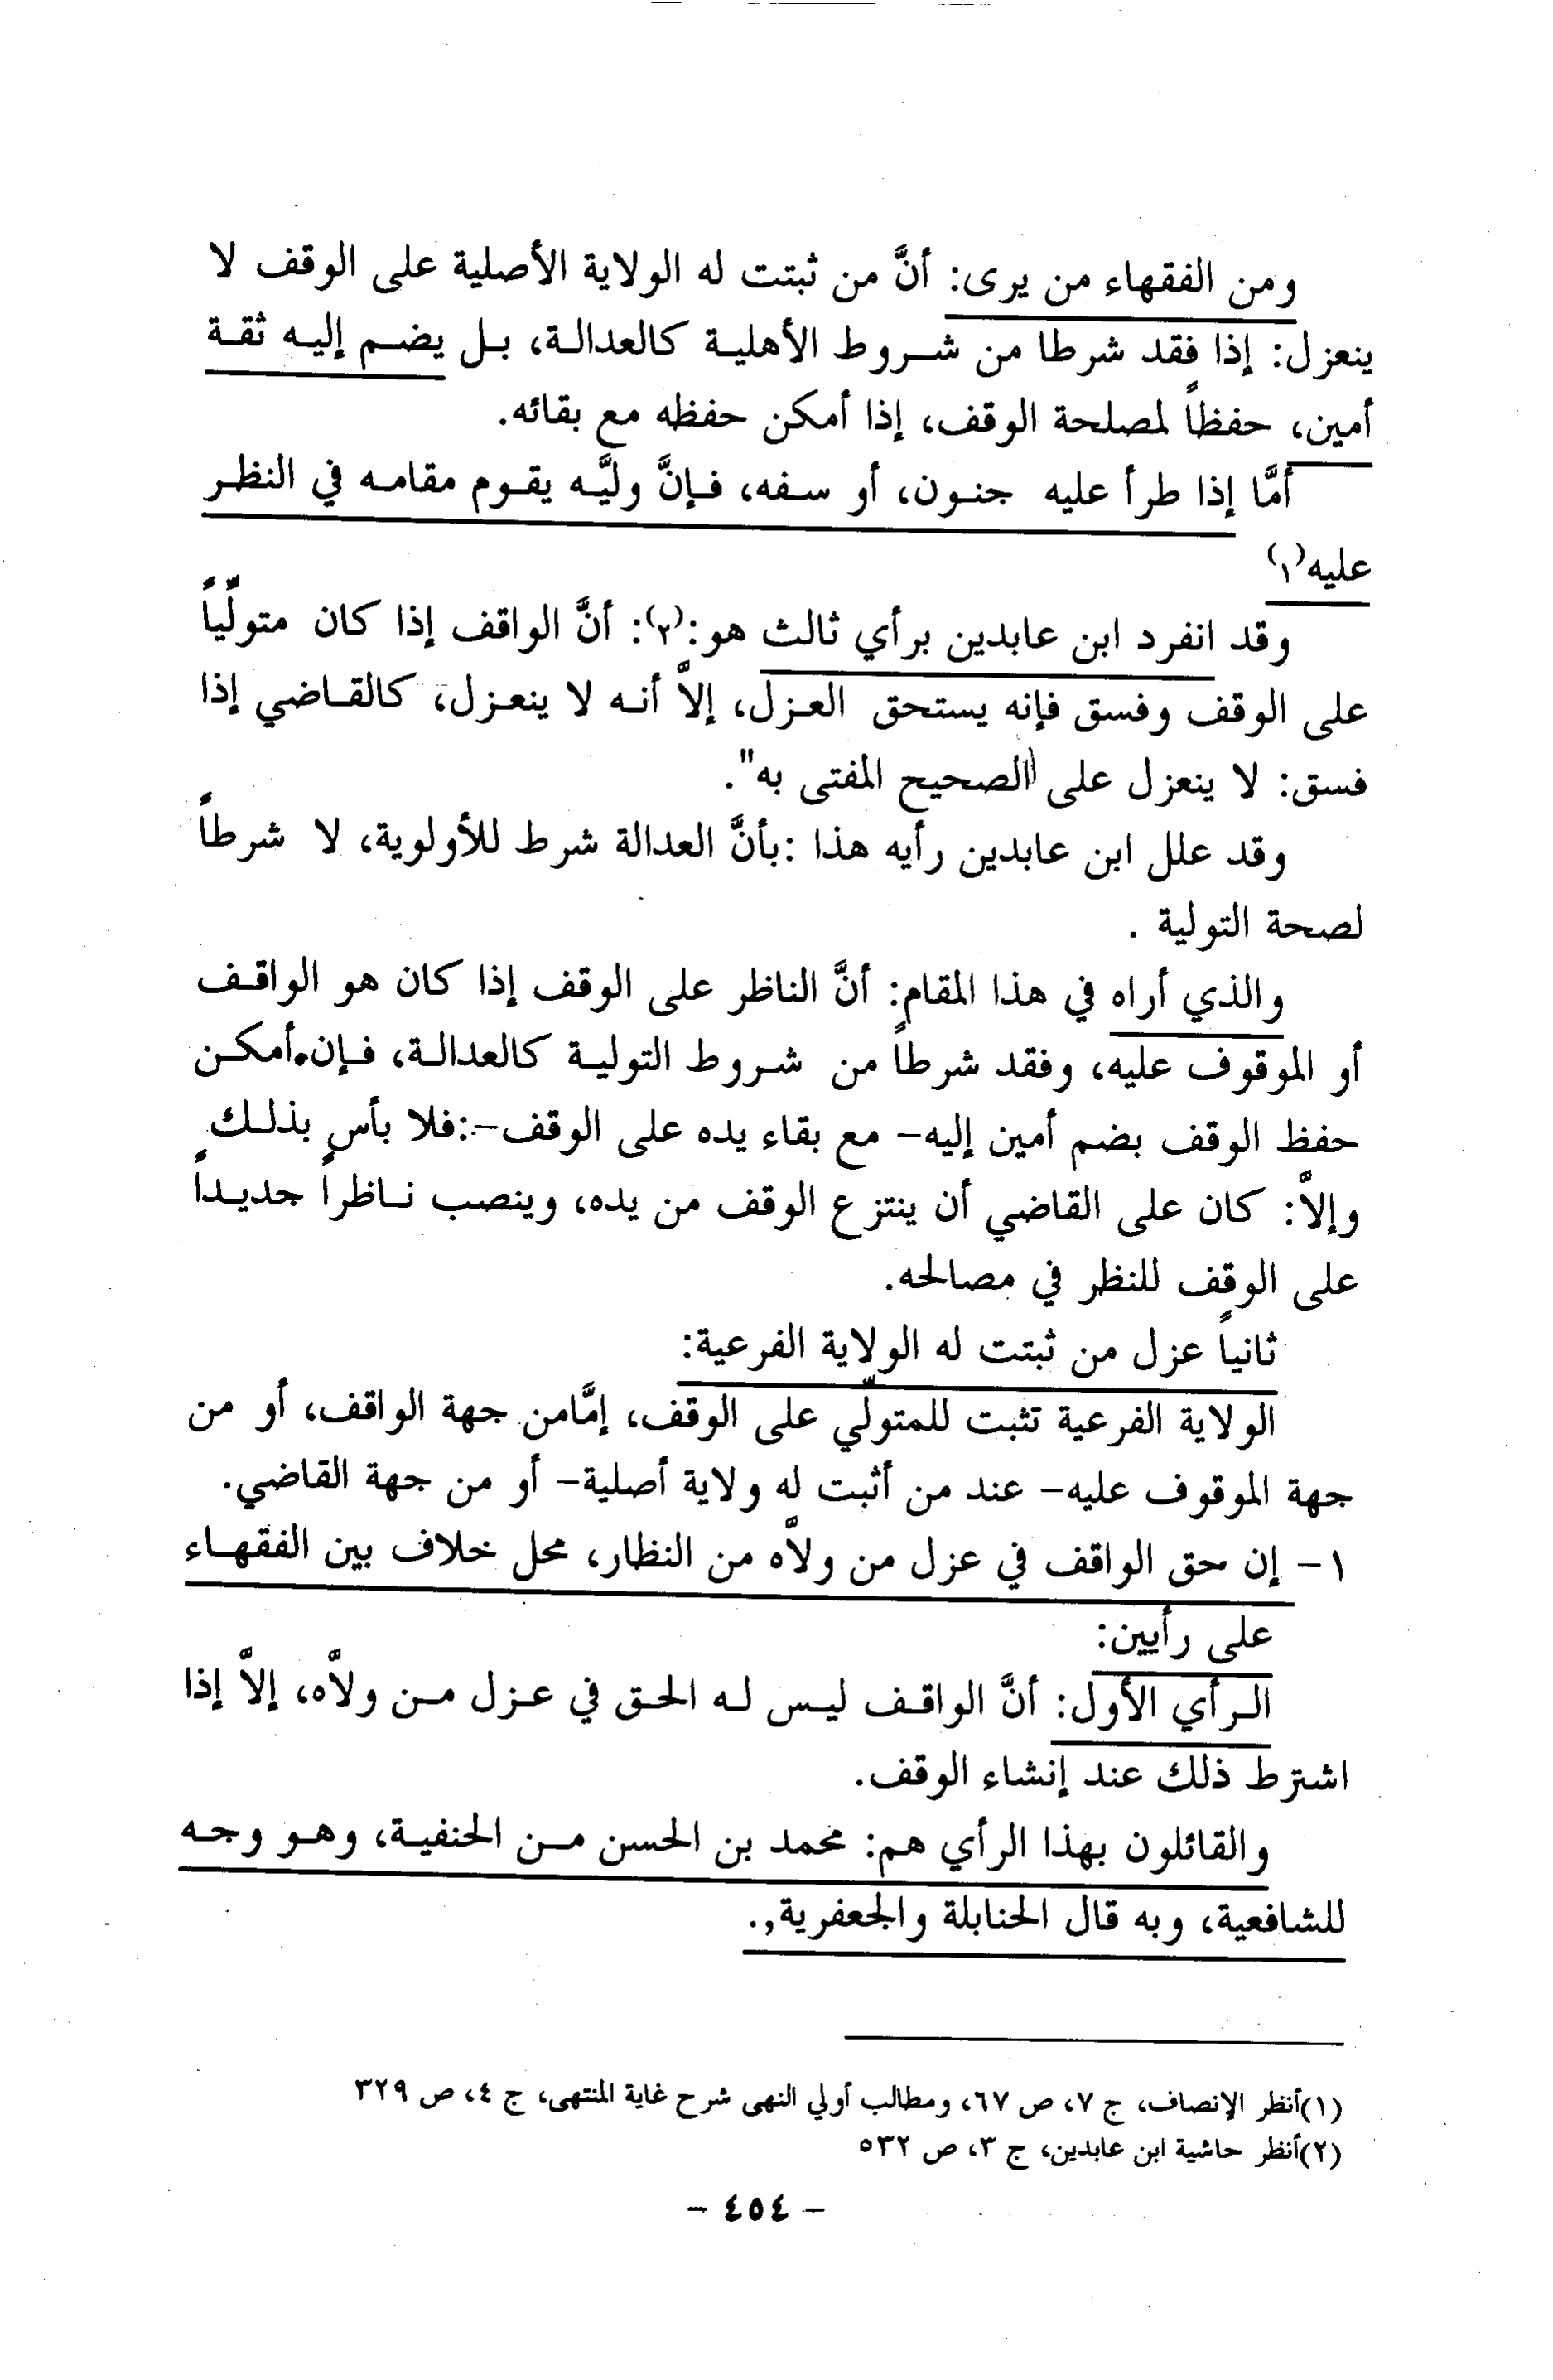 ومن الفقهاء من يرى: أنَّ من ثبتت له الولاية الأصلية على الوقف لا
ينعزل: إذا فقد شرطا من شروط الأهلية كالعدالة، بل يضم إليه ثقة
أمين، حفظاً لمصلحة الوقف، إذا أمكن حفظه مع بقائه.
أمَّا إذا طرأ عليه جنون، أو سفه، فإنَّ وليَّه يقوم مقامه في النظر
عليه(١)
وقد انفرد ابن عابدين برأي ثالث هو:(٢): أنَّ الواقف إذا كان متولّياً
على الوقف وفسق فإنه يستحق العزل، إلاَّ أنه لا ينعزل، كالقاضي إذا
فسق: لا ينعزل على "الصحيح المفتى به".
وقد علل ابن عابدين رأيه هذا :بأنَّ العدالة شرط للأولوية، لا شرطاً
لصحة التولية .
والذي أراه في هذا المقام: أنَّ الناظر على الوقف إذا كان هو الواقف
أو الموقوف عليه، وفقد شرطاً من شروط التولية كالعدالة، فإن أمكن
حفظ الوقف بضم أمين إليه- مع بقاء يده على الوقف-:فلا بأس بذلك
وإلاَّ: كان على القاضي أن ينتزع الوقف من يده، وينصب ناظراً جديداً
على الوقف للنظر في مصالحه.
ثانياً عزل من ثبتت له الولاية الفرعية:
الولاية الفرعية تثبت للمتولّي على الوقف، إمَّامن جهة الواقف، أو من
جهة الموقوف عليه- عند من أثبت له ولاية أصلية- أو من جهة القاضي.
١- إن حق الواقف في عزل من ولاَّه من النظار، محل خلاف بين الفقهاء
على رأيين:
الرأي الأول: أنَّ الواقف ليس له الحق في عزل من ولاَّه، إلاَّ إذا
اشترط ذلك عند إنشاء الوقف.
والقائلون بهذا الرأي هم: محمد بن الحسن من الحنفية، وهو وجه
للشافعية، وبه قال الحنابلة والجعفرية,.
(١)أنظر الإنصاف، ج ٧، ص ٦٧، ومطالب أولي النهى شرح غاية المنتهى، ج ٤، ص ٣٢٩
(٢)أنظر حاشية ابن عابدين، ج ٣، ص ٥٣٢
- ٤٥٤ -